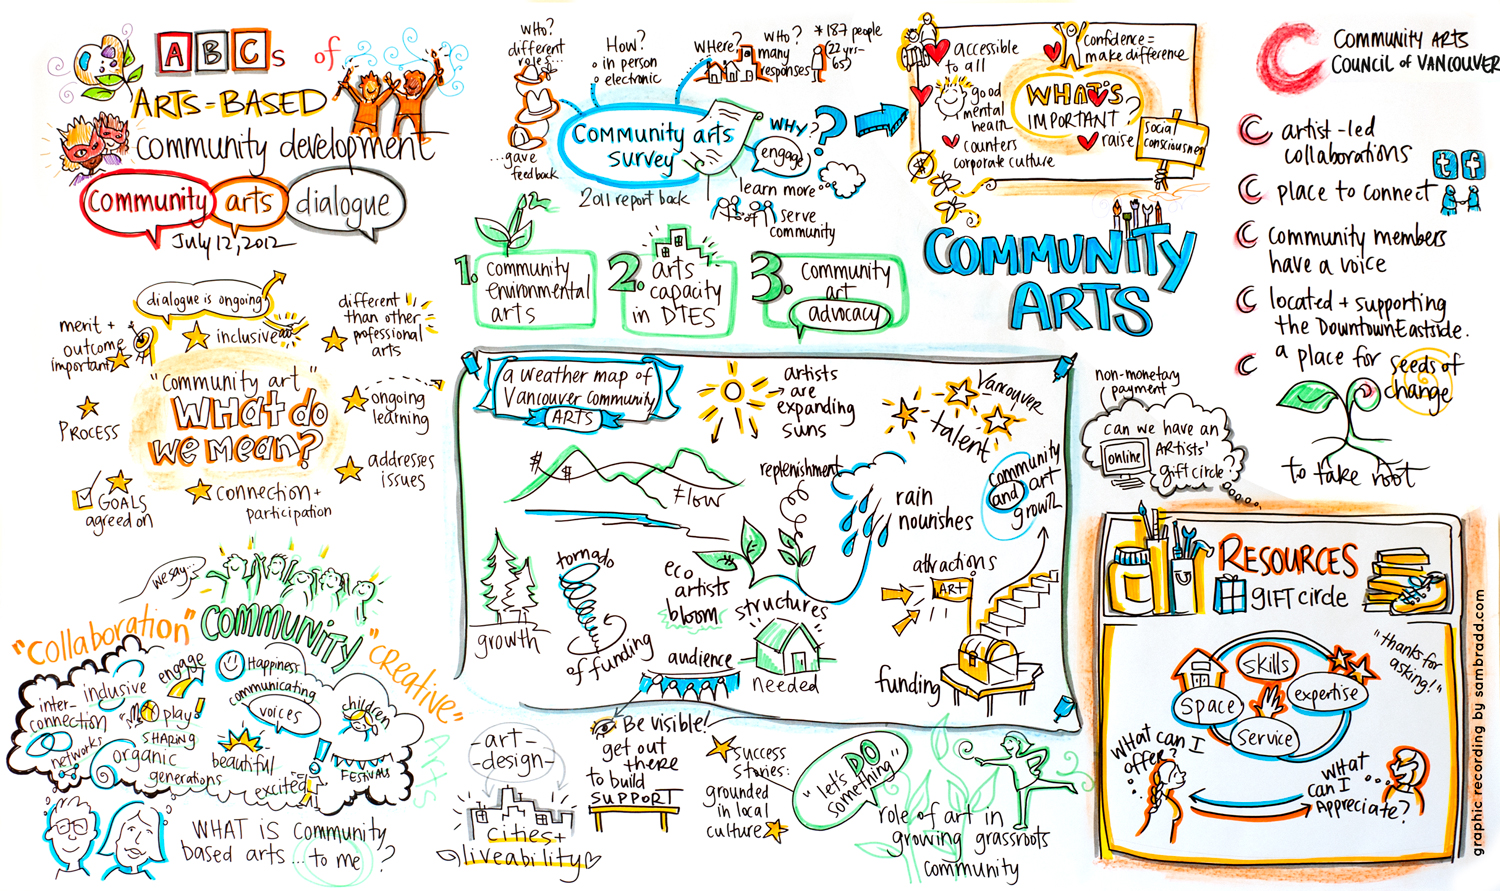 ABCs of
ARTS-BASED
community development
community arts dialogue
July 12, 2012
WHO?
different
roles...
...gave
feedback
How?
in person
electronic
WHERE?
WHO?
many
responses
* 187 people
(22 yrs-
65)
Community arts
survey
2011 report back
WHY?
engage
learn more
serve
community
1. community
environmental
arts
2. arts
capacity
in DTES
3. community
art
advocacy
accessible
to all
Confidence =
make difference
good
mental
health
counters
corporate culture
WHAT'S
IMPORTANT?
raise
social
consciousness
COMMUNITY
ARTS
COMMUNITY ARTS
COUNCIL of VANCOUVER
artist-led
collaborations
t f
place to connect
community members
have a voice
located + supporting
the Downtown Eastside.
a place for seeds of
change
to take root
dialogue is ongoing
merit +
outcome
important
inclusive
different
than other
professional
arts
"Community art"
WHAT do
we mean?
PROCESS
ongoing
learning
addresses
issues
GOALS
agreed on
connection +
participation
a weather map of
Vancouver Community
ARTS
artists
are
expanding
suns
Vancouver
talent
$ $
flow
replenishment
rain
nourishes
community
and art
growth
growth
tornado
of funding
eco
artists
bloom
structures
needed
audience
attractions
ART
funding
non-monetary
payment
can we have an
online ARTISTS'
gift circle?
RESOURCES
GIFT circle
"thanks for
asking!"
skills
space
expertise
service
What can I
offer?
What
can I
Appreciate?
we say...
"collaboration"
COMMUNITY
"creative"
Arts
inter-
connection
networks
inclusive
engage
Happiness
communicating
voices
play
SHARING
organic
generations
beautiful
excited
children
FESTIVALS
WHAT IS community
based arts... to me?
-art-
-design-
cities +
liveability
Be visible!
get out
there
to build
SUPPORT
success
stories:
grounded
in local
culture
"let's DO
something"
role of art in
growing grassroots
community
graphic recording by sambradd.com